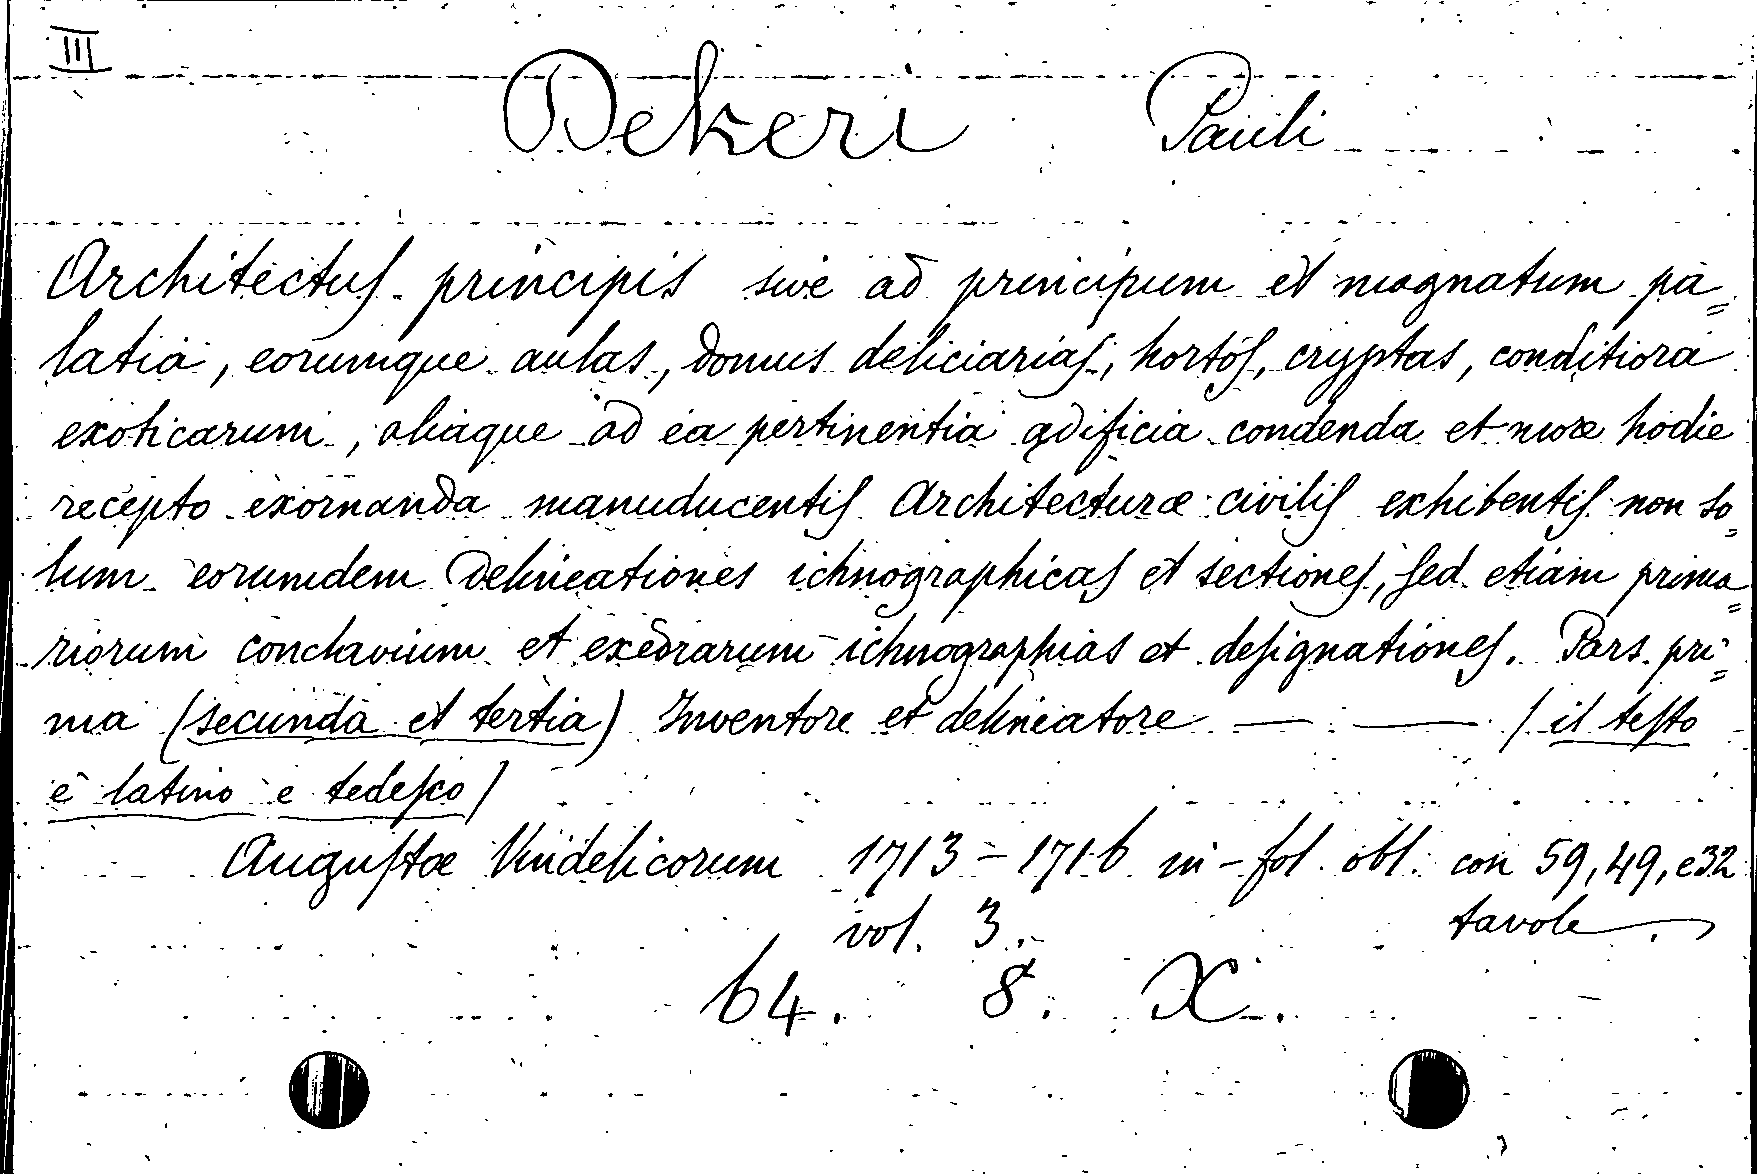 III
Dekeri Pauli
Architectus principis sive ad principum et magnatum pa=
latia, eorumque aulas, domus deliciarias, hortos, cryptas, conditiora
exoticarum, aliaque ad ea pertinentia ædificia condenda et more hodie
recepto exornanda manuducentis Architecturæ civilis exhibentis non so=
lum eorumdem delineationes ichnographicas et sectiones, sed etiam prima=
riorum conclavium et exedrarum ichnographias et designationes. Pars pri=
ma (secunda et tertia) Inventore et delineatore — — (il testo
è latino e tedesco)
Augustæ Vindelicorum 1713 - 1716 in-fol. obl. con 59, 49, e 32
vol. 3. tavole
64. 8. X.